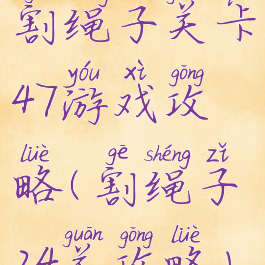 割绳子关卡
yóu xì gōng
47游戏攻
lüè gē shéng zǐ
略(割绳子
guān gōng lüè
24关攻略)